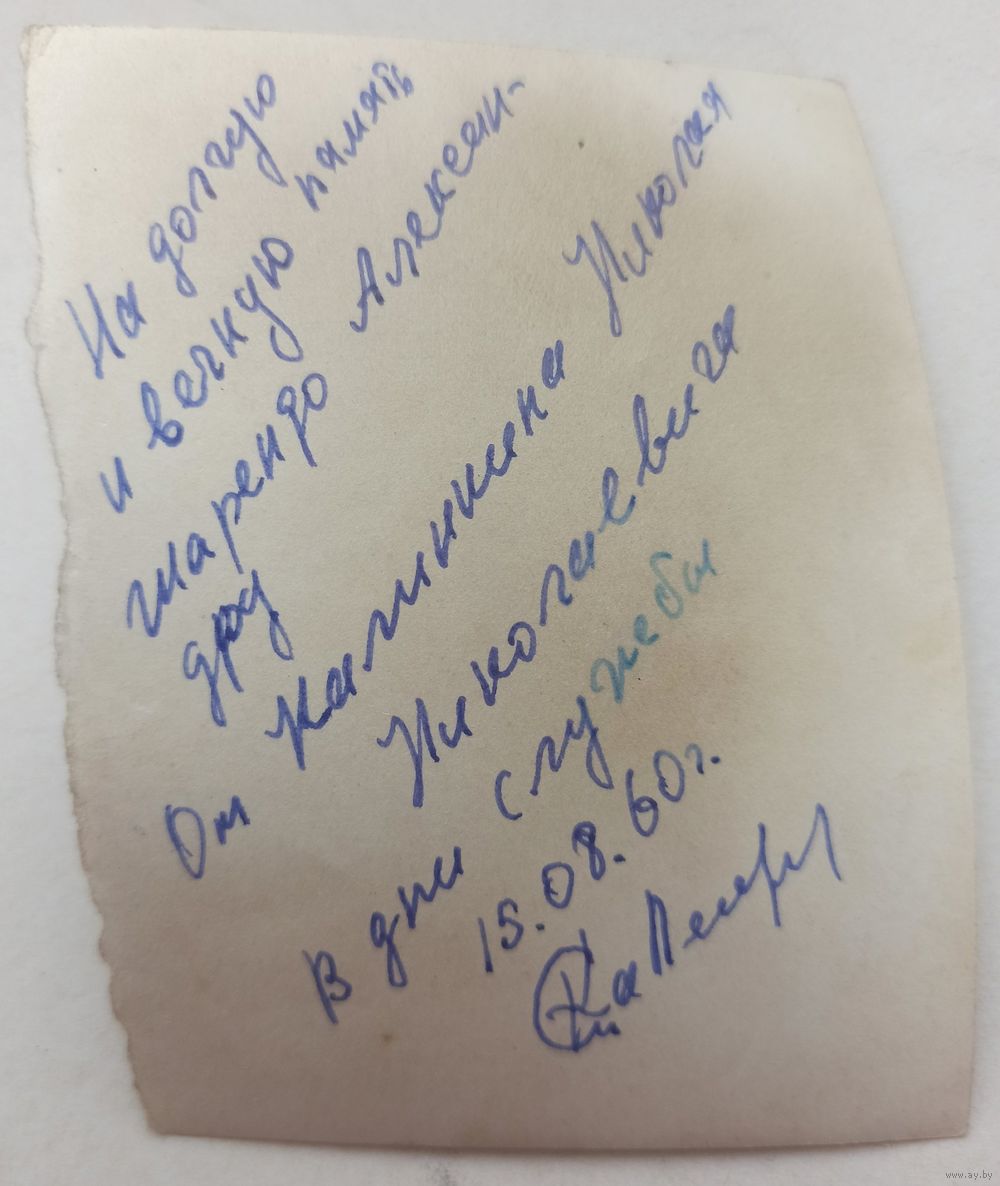 На долгую
и вечную память
Шарендо Алексан-
дру
От Калинкина Николая
Николаевича
в дни службы
15.08.60г.
www.ay.by